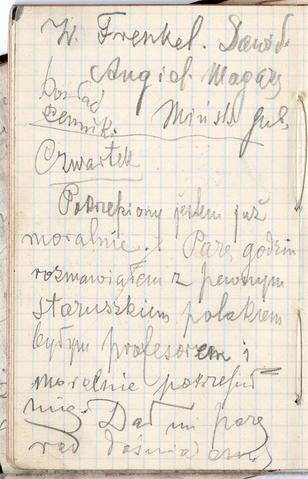 W. Frenkel. Dawid.
Angiel. Magaz
Mińsk Gub
Czwartek
Pokrzepiony jestem już
moralnie. Parę godzin
rozmawiałem z pewnym
staruszkiem polakiem
byłym profesorem i
moralnie pokrzepił
mię. Dał mi parę
rad